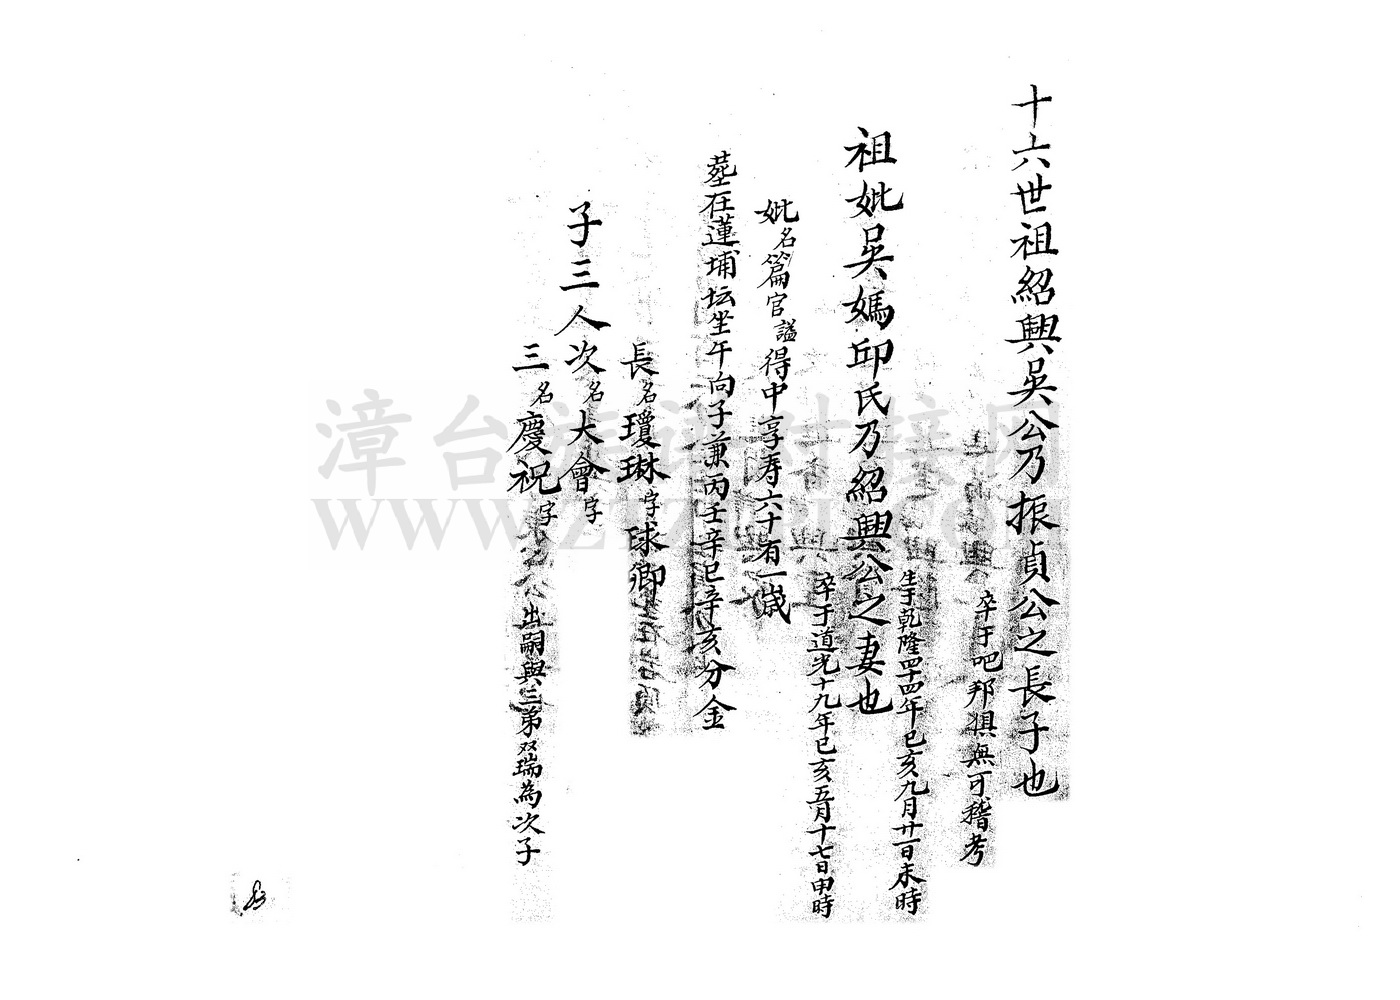 十六世祖紹興吳公乃振貞公之長子也
卒于吧邦俱無可稽考
祖妣吳媽邱氏乃紹興公之妻也
生于乾隆四十四年已亥九月廿一日未時
卒于道光十九年已亥五月十七日申時
妣名篇官謚得中享寿六十有一歲
塟在蓮埔坛坐午向子兼丙壬辛巳辛亥分金
長名瓊琳字球卿
子三人次名大會字
三名慶祝字 出嗣與三弟双瑞為次子
83
漳台族谱对接网
www.ztzupu.com